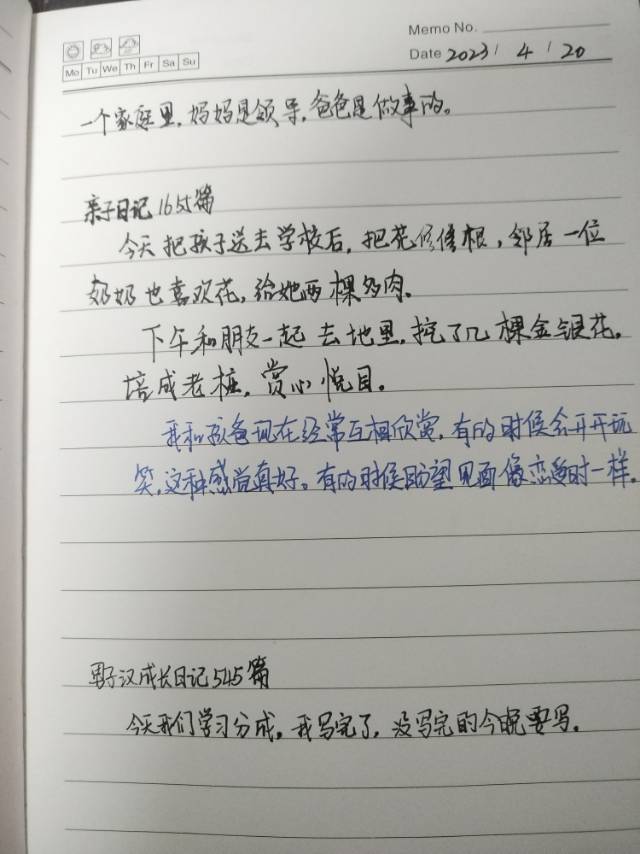 Memo No.
Mo Tu We Th Fr Sa Su
Date 2023 / 4 / 20
一个家庭里,妈妈是领导,爸爸是做事的。
亲子日记1655篇
今天把孩子送去学校后,把花修修根,邻居一位
奶奶也喜欢花,给她两棵多肉。
下午和朋友一起去地里,挖了几棵金银花,
培成老桩,赏心悦目。
我和孩爸现在经常互相欣赏,有的时候会开开玩
笑,这种感觉真好。有的时候盼望见面像恋爱时一样。
男子汉成长日记545篇
今天我们学习分成。我写完了,没写完的今晚要写。